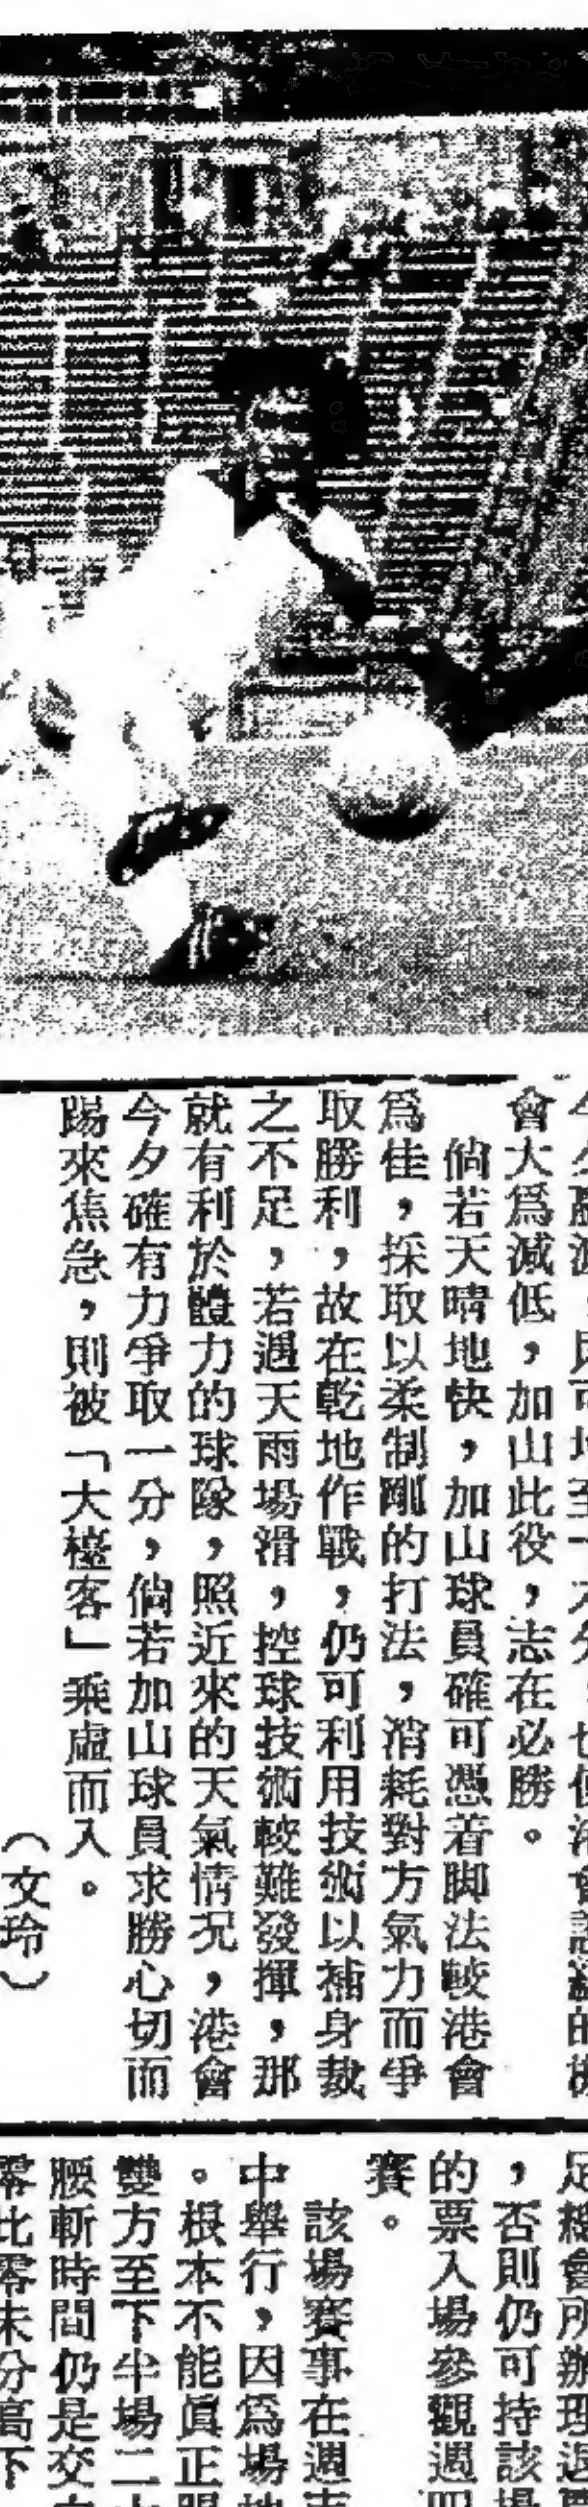 會大爲減低，加山此役，志在必勝。
倘若天晴地快，加山球員確可憑着脚法較港會
爲佳，採取以柔制剛的打法，消耗對方氣力而爭
取勝利，故在乾地作戰，仍可利用技術以補身裁
之不足，若遇天雨場滑，控球技術較難發揮，那
就有利於體力的球隊，照近來的天氣情况，港會
今夕確有力爭取一分，倘若加山球員求勝心切而
踢來焦急，則被「大檯客」乘虛而入。
（文玲）
，否則仍可持該場
的票入場參觀週四
賽。
該場賽事在週
中舉行，因爲場地
。根本不能眞正
雙方至下半場二
腰斬時間仍是交
零比零未分高下